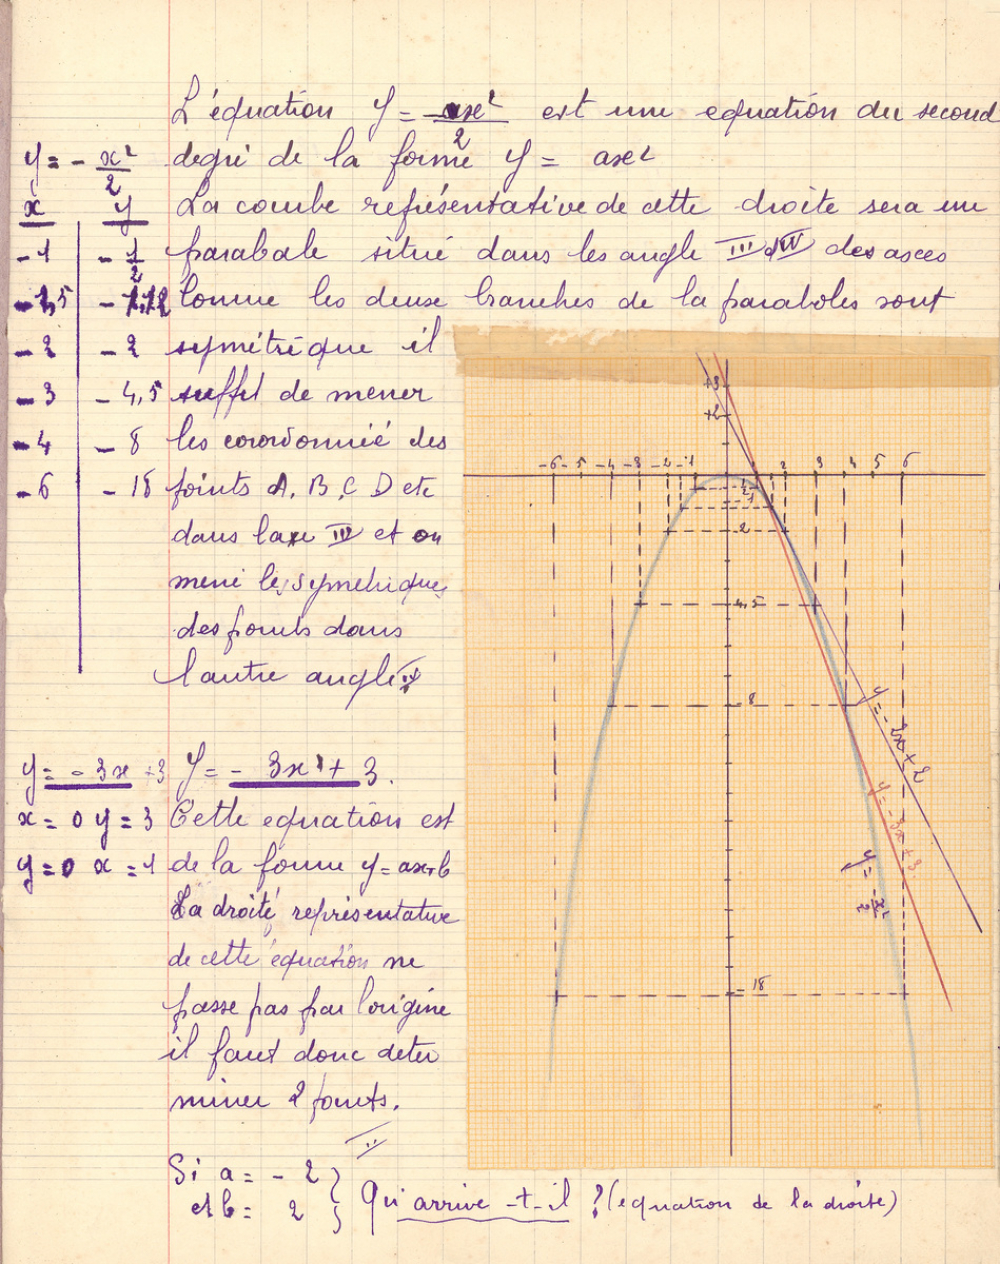 L'équation y = -x²/2 est une equation du second
degré de la forme y = ax²
La courbe représentative de cette droite sera une
parabale situé dans les angle III et IV des axes
Comme les deux branches de la paraboles sont
symétrique il
suffit de mener
les coordonnié des
points A, B, C D etc
dans l'axe III et on
mene les symetrique
des points dans
l'autre angle IV
y = - x²/2
x y
-1 - 1/2
-1,5 - 1,12
-2 - 2
-3 - 4,5
-4 - 8
-6 - 18
y = - 3x + 3
x = 0 y = 3
y = 0 x = 1
Y = - 3x + 3.
Cette equation est
de la forme y = ax+b
La droite représentative
de cette équation ne
passe pas par l'origine
il faut donc deter
miner 2 points.
II
Si a = - 2
et b = 2
Qu'arrive-t-il ? (equation de la droite)
+3
+2
-6 -5 -4 -3 -2 -1 2 3 4 5 6
-1
-2
-4,5
-8
-18
y = -2x+2
y = -3x+3
y = -x²/2